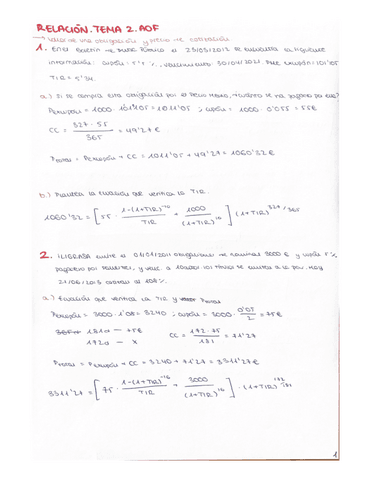 RELACIÓN. TEMA 2. AOF
→ valor de una obligación y precio de cotización
1. En el Boletín de Deuda Pública el 23/03/2012 se encuentra la siguiente
información: cupón = 5'5 %, vencimiento: 30/04/2021. Precio excupón: 101'05
TIR = 5'34.
a.) Si se compra esta obligación por el precio medio, ¿cuánto se ha pagado por ella?
Pexcupón = 1000 · 101'05% = 1011'05 ; cupón = 1000 · 0'055 = 55€
CC = 327 · 55 / 365 = 49'27€
Ptotal = Pexcupón + CC = 1011'05 + 49'27 = 1060'32 €
b.) Plantea la ecuación que verifica la TIR.
1060'32 = [55 · 1-(1+TIR)^-10 / TIR + 1000 / (1+TIR)^10] (1+TIR)^327/365
2. emite el 01/01/2011 obligaciones de nominal 3000 € y cupón 5%
pagadero por semestres, y vence a 10 años. Los títulos se emiten a la par. Hoy
21/06/2013 cotizan al 108%.
a.) Ecuación que verifica la TIR y Ptotal
Pexcupón = 3000 · 1'08 = 3240 ; cupón = 3000 · 0'05 / 2 = 75€
181d — 75€
172d — x
CC = 172 · 75 / 181 = 71'27
Ptotal = Pexcupón + CC = 3240 + 71'27 = 3311'27€
3311'27 = [75 · 1-(1+TIR)^-16 / TIR + 3000 / (1+TIR)^16] · (1+TIR)^172/181
1